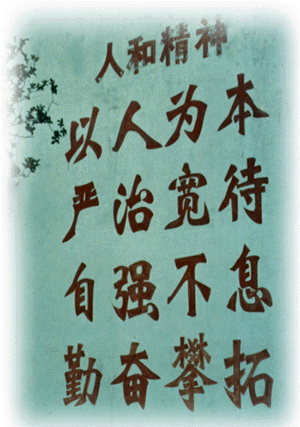 人和精神
以人为本
严治宽待
自强不息
勤奋攀拓